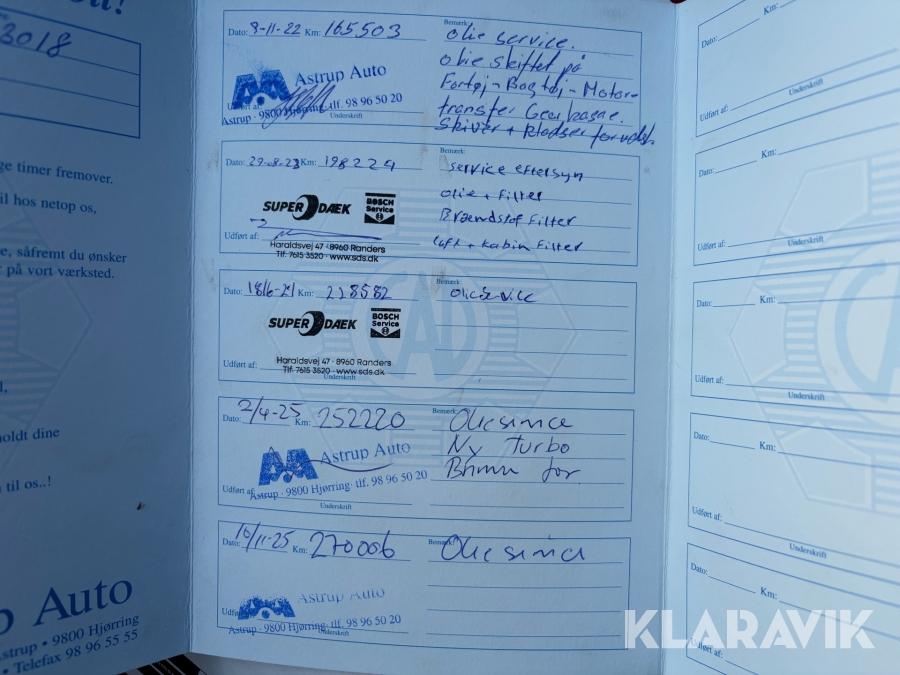 3018
ge timer fremover.
il hos netop os,
e, såfremt du ønsker
r på vort værksted.
holdt dine
til os..!
p Auto
up • 9800 Hjørring
• Telefax 98 96 55 55
Dato: 3-11-22 Km: 165503
Bemærk:
olie service.
olie skiftet på
Fortøj - Bagtøj - Motor-
transfer Gearkasse.
Skiver + klodser
Astrup Auto
Udført af:
Astrup · 9800 Hjørring · tlf. 98 96 50 20
Underskrift
Dato: 29-8-23 Km: 198224
Bemærk:
service eftersyn
olie + filter
Brændstof filter
luft + kabin filter
SUPER DÆK
BOSCH
Service
Udført af:
Haraldsvej 47 · 8960 Randers
Tlf. 7615 3520 · www.sds.dk
Dato: Km: 228582
Bemærk:
Olieservice
SUPER DÆK
BOSCH
Service
Udført af:
Haraldsvej 47 · 8960 Randers
Tlf. 7615 3520 · www.sds.dk
Underskrift
CAD
Dato: 2/4-25 Km: 252220
Bemærk:
Ny Turbo
for
Astrup Auto
Udført af:
Astrup · 9800 Hjørring · tlf. 98 96 50 20
Underskrift
Dato: 10/11-25 Km: 270006
Bemærk:
Astrup Auto
Astrup · 9800 Hjørring · tlf. 98 96 50 20
Underskrift
Km:
Dato:
Udført af:
Underskrift
Dato:
Km:
Udført af:
Underskrift
Dato:
Km:
Udført af:
Underskrift
Dato:
Km:
Udført af:
Underskrift
Dato:
Km:
Udført af:
Underskrift
KLARAVIK